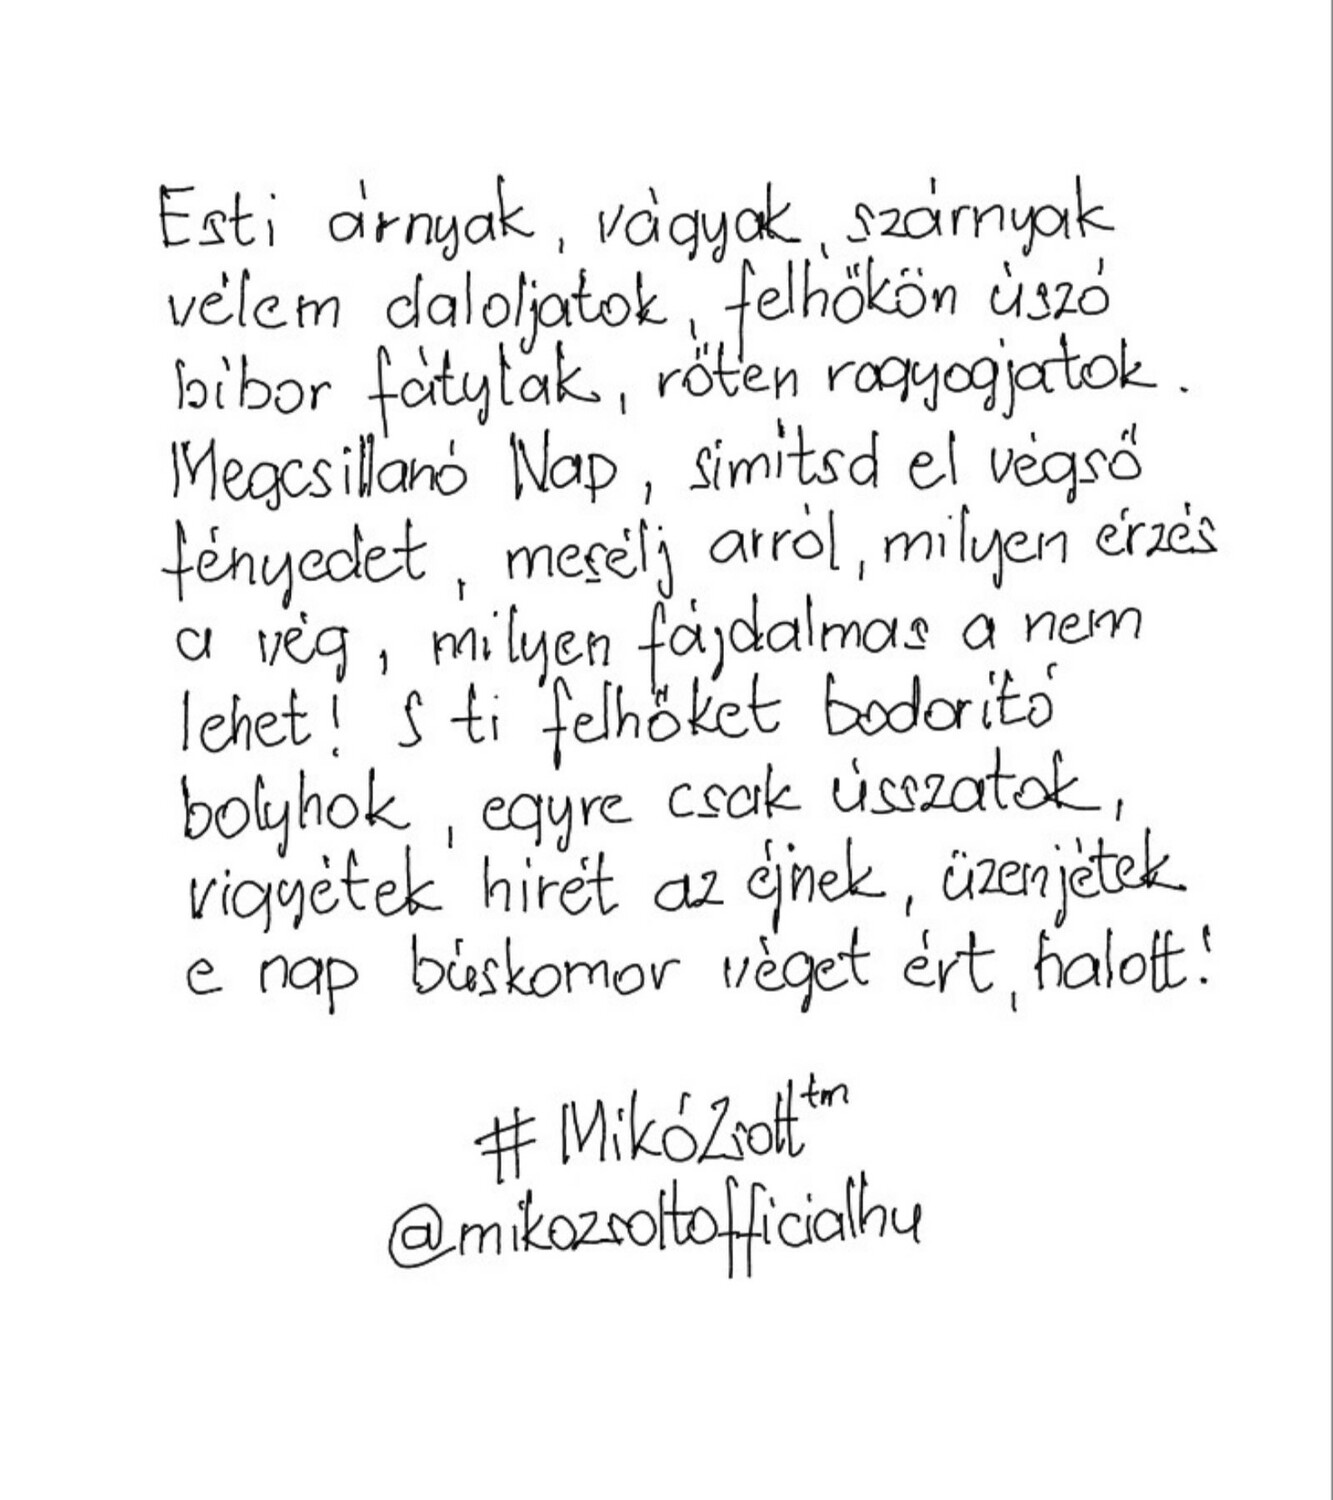 Esti árnyak, vágyak, szárnyak
vélem daloljatok, felhőkön úszó
bíbor fátylak, rőten ragyogjatok.
Megcsillanó Nap, simítsd el végső
fényedet, mesélj arról, milyen érzés
a vég, milyen fájdalmas a nem
lehet! S ti felhőket bodorító
bolyhok, egyre csak ússzatok,
vigyétek hírét az éjnek, üzenjétek
e nap búskomor véget ért, halott!
#MikóZsolt™
@mikozsoltofficialhu